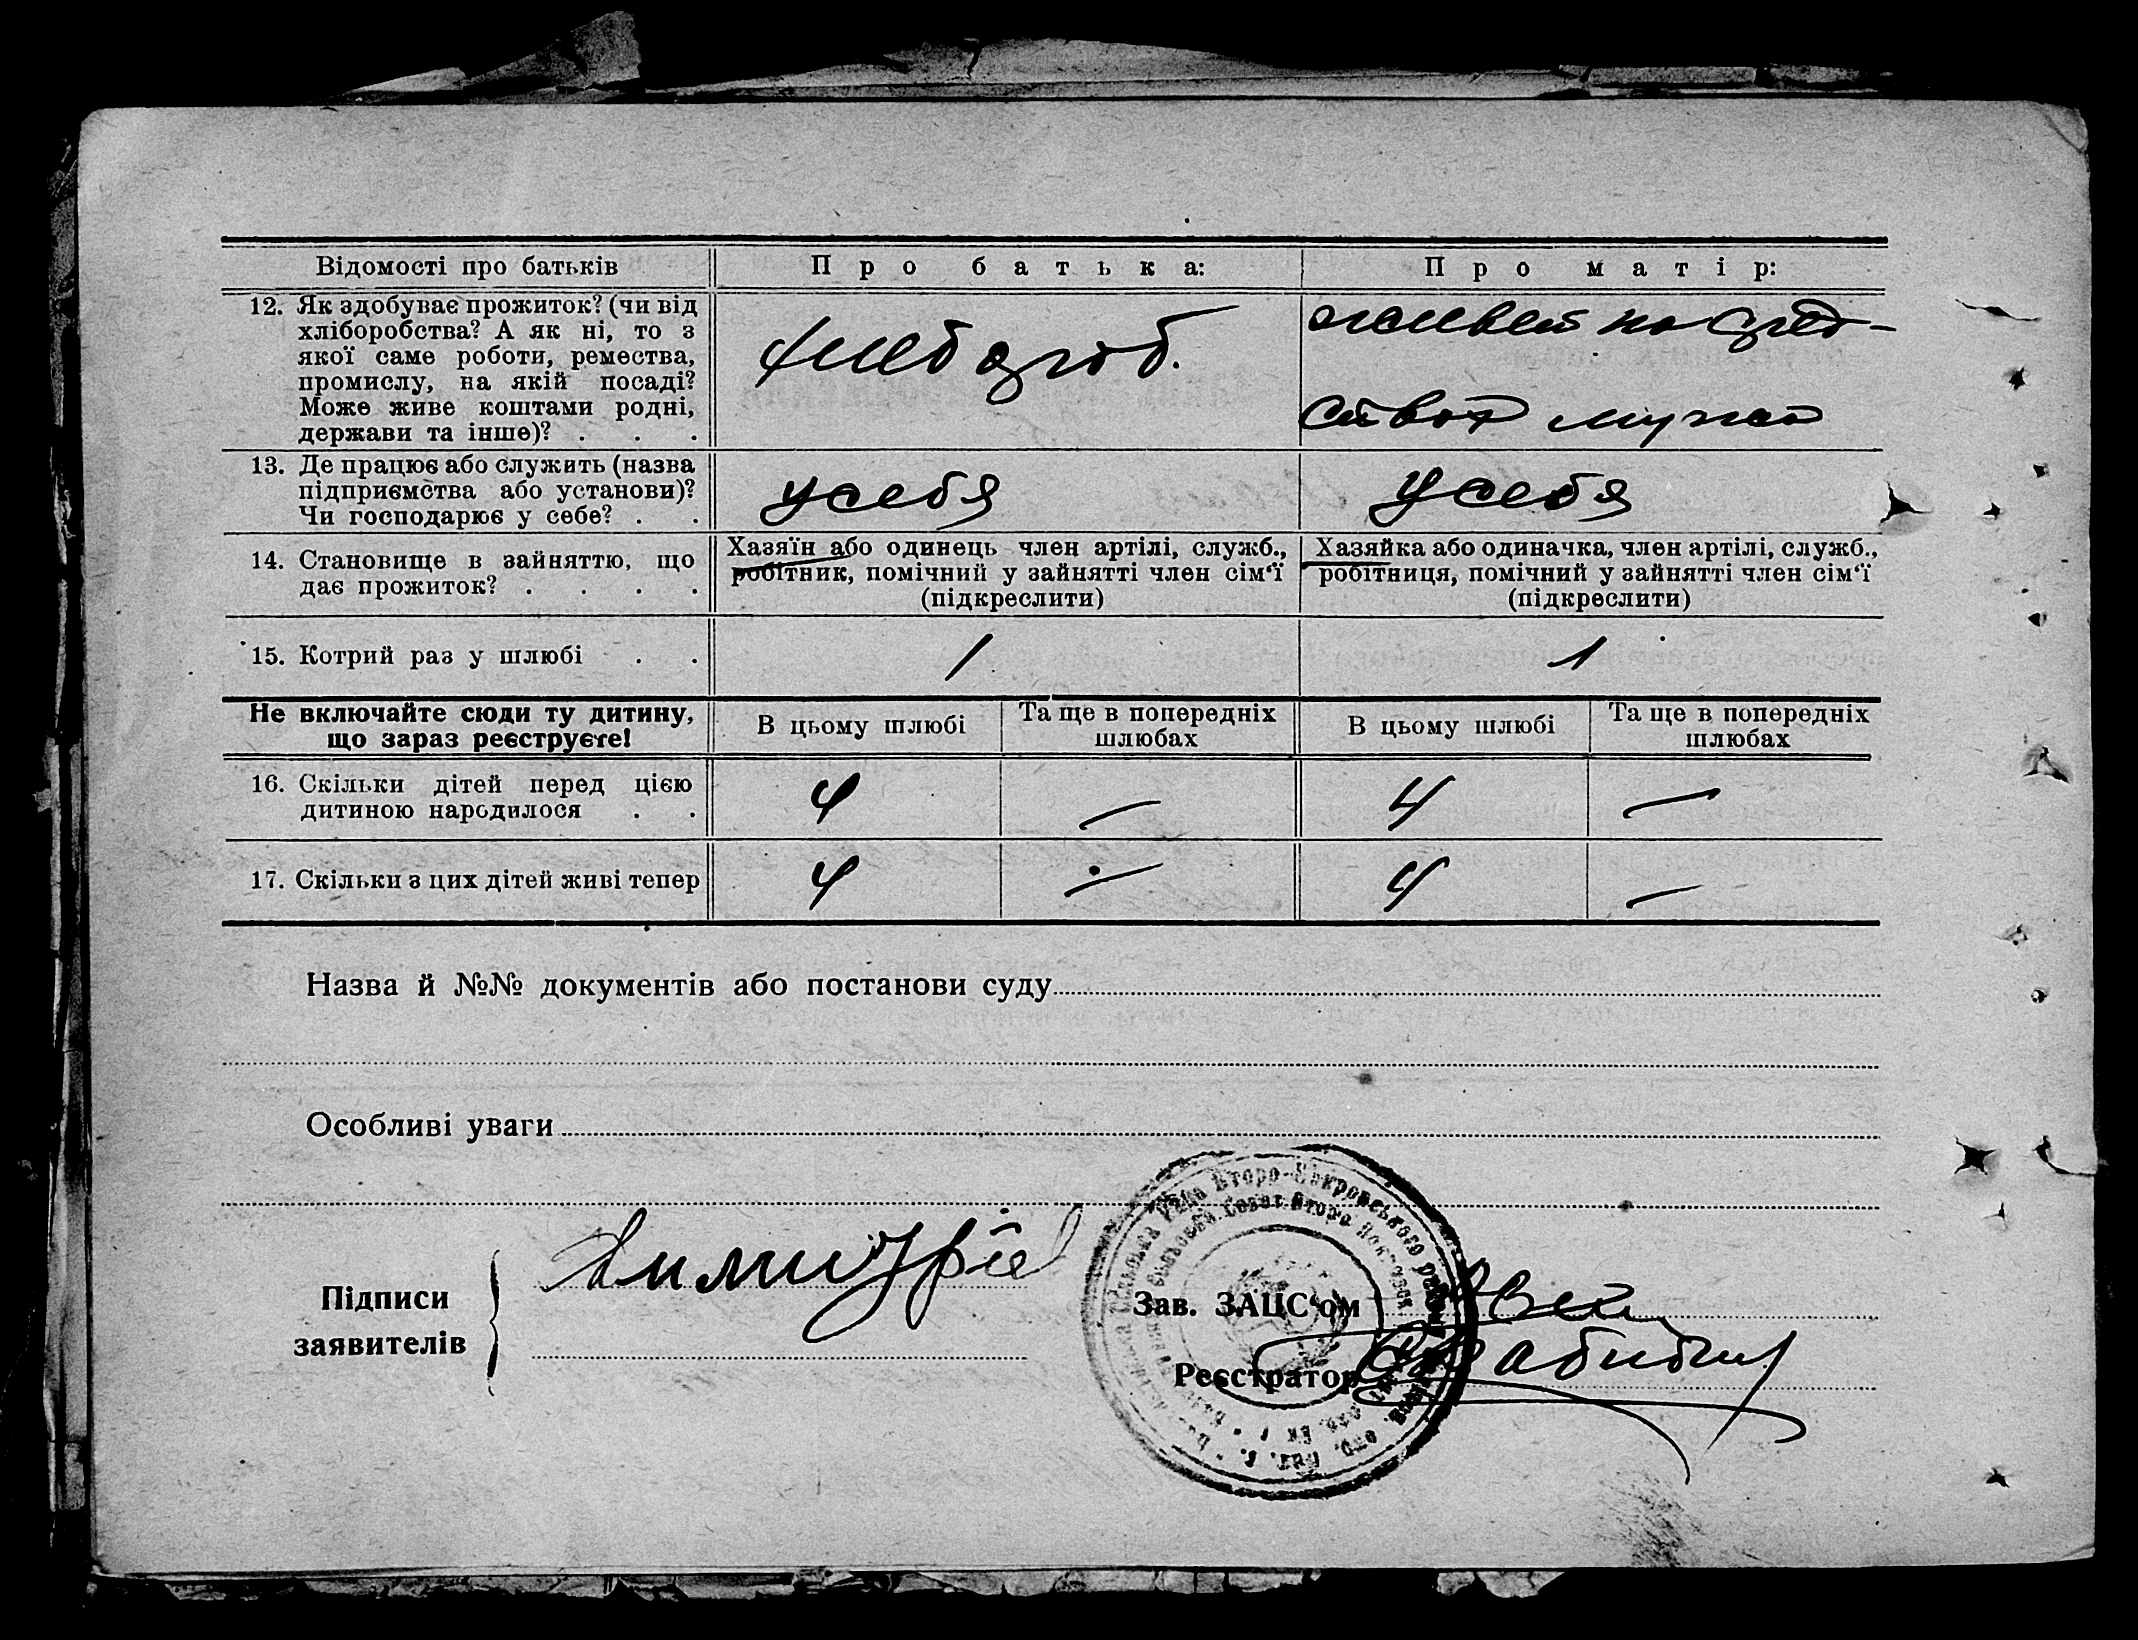 Відомості про батьків
Про батька:
Про матір:
12. Як здобуває прожиток? (чи від
хліборобства? А як ні, то з
якої саме роботи, ремества,
промислу, на якій посаді?
Може живе коштами родні,
держави та інше)? . . .
хлебороб.
живет на сред-
ства мужа
13. Де працює або служить (назва
підприємства або установи)?
Чи господарює у себе? . .
у себя
у себя
14. Становище в зайняттю, що
дає прожиток? . . . .
Хазяїн або одинець член артілі, служб.,
робітник, помічний у зайнятті член сім‘ї
(підкреслити)
Хазяйка або одиначка, член артілі, служб.,
робітниця, помічний у зайнятті член сім‘ї
(підкреслити)
15. Котрий раз у шлюбі . .
1
1
Не включайте сюди ту дитину,
що зараз реєструєте!
В цьому шлюбі
Та ще в попередніх
шлюбах
В цьому шлюбі
Та ще в попередніх
шлюбах
16. Скільки дітей перед цією
дитиною народилося . .
4 — 4 —
17. Скільки з цих дітей живі тепер
4 — 4 —
Назва й №№ документів або постанови суду
Особливі уваги
Підписи
заявителів
Зав. ЗАЦС‘ом
Реєстратор